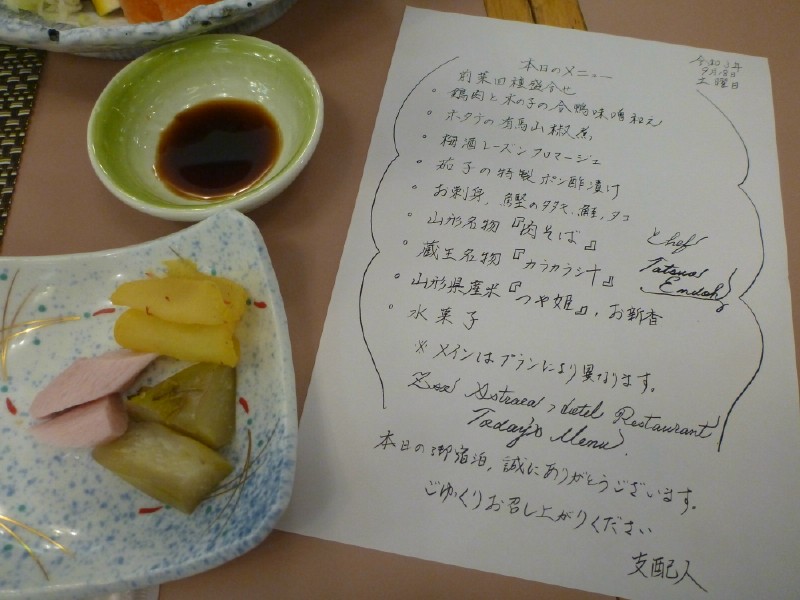 令和3年
9月18日
土曜日
本日のメニュー
前菜四種盛合せ
・鶏肉と木の子の合鴨味噌和え
・ホタテの有馬山椒煮
・梅酒レーズンフロマージュ
・茄子の特製ポン酢漬け
・お刺身、鰹のタタキ、鮭、タコ
・山形名物『肉そば』
・蔵王名物『カラカラ汁』
・山形県産米『つや姫』、お新香
・水菓子
Chef
Tatsua
Endoh
※メインはプランにより異なります。
Zao Astraea Hotel Restaurant
Today's Menu
本日の御宿泊、誠にありがとうございます。
ごゆっくりお召し上がりください
支配人